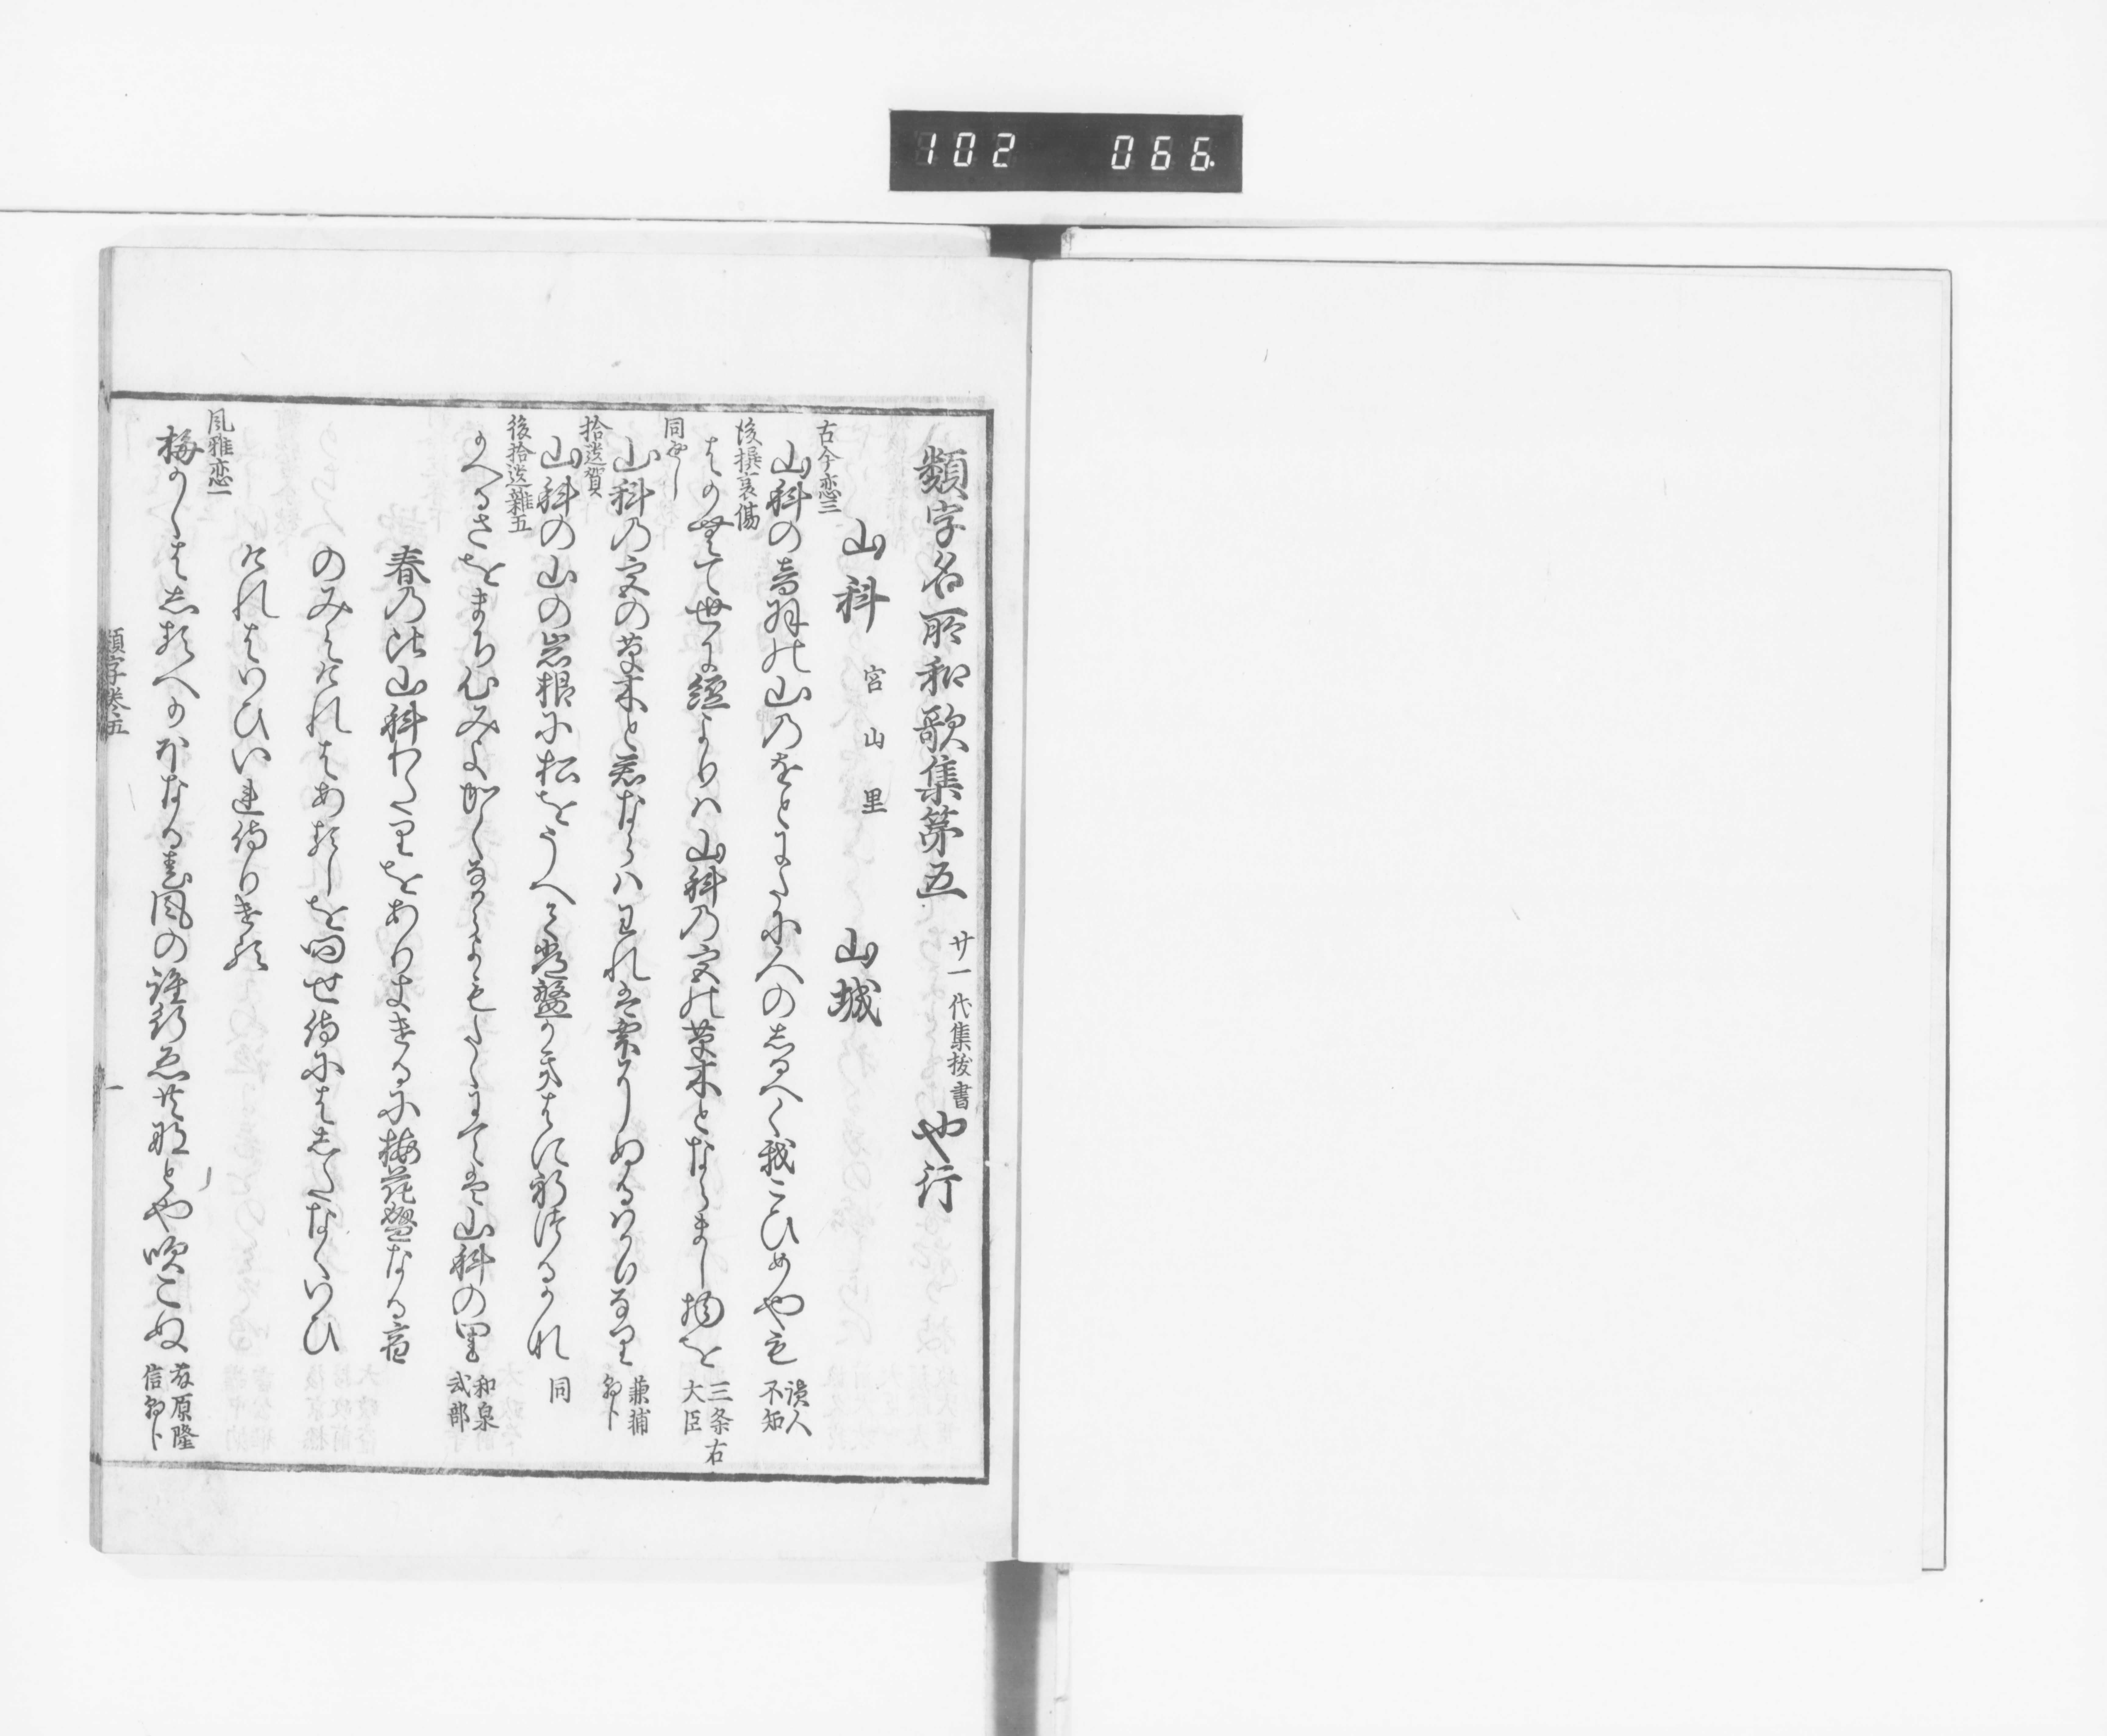 102 066
類字名所和歌集第五 廿一代集抜書 也行
山科 宮 山 里 山城
古今恋三
山科の音羽の山のをとにたに人のしるへく我こひめやも 読人不知
後撰哀傷
はかなくて世にふるよりは山科の宮の草木とならまし物を 三条右大臣
同 返し
山科の宮の草木と君ならはわれは雫にぬるはかりなり 兼輔卿
拾遺賀
山科の山の岩根に松をうへてときはかきはに祈つるかな 同
後拾遺雑五
かへるさをまち心みよかくなからよもたゝにては山科の里 和泉式部
春の比山科わたりをありきけるに梅花盛なる宿
のみえけれはあるしを問せ侍にはしたなくいひ
けれはいひいれ侍りける
風雅恋一
梅かゝはしるへかほなる春風の誰行ゑともとや吹こぬ 藤原隆信朝臣
類字巻五 一